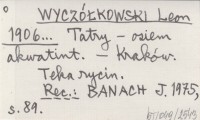 WYCZÓŁKOWSKI Leon
1906... Tatry - osiem
akwatint. - Kraków.
Teka rycin.
Rec.: BANACH J. 1975,
s. 89.